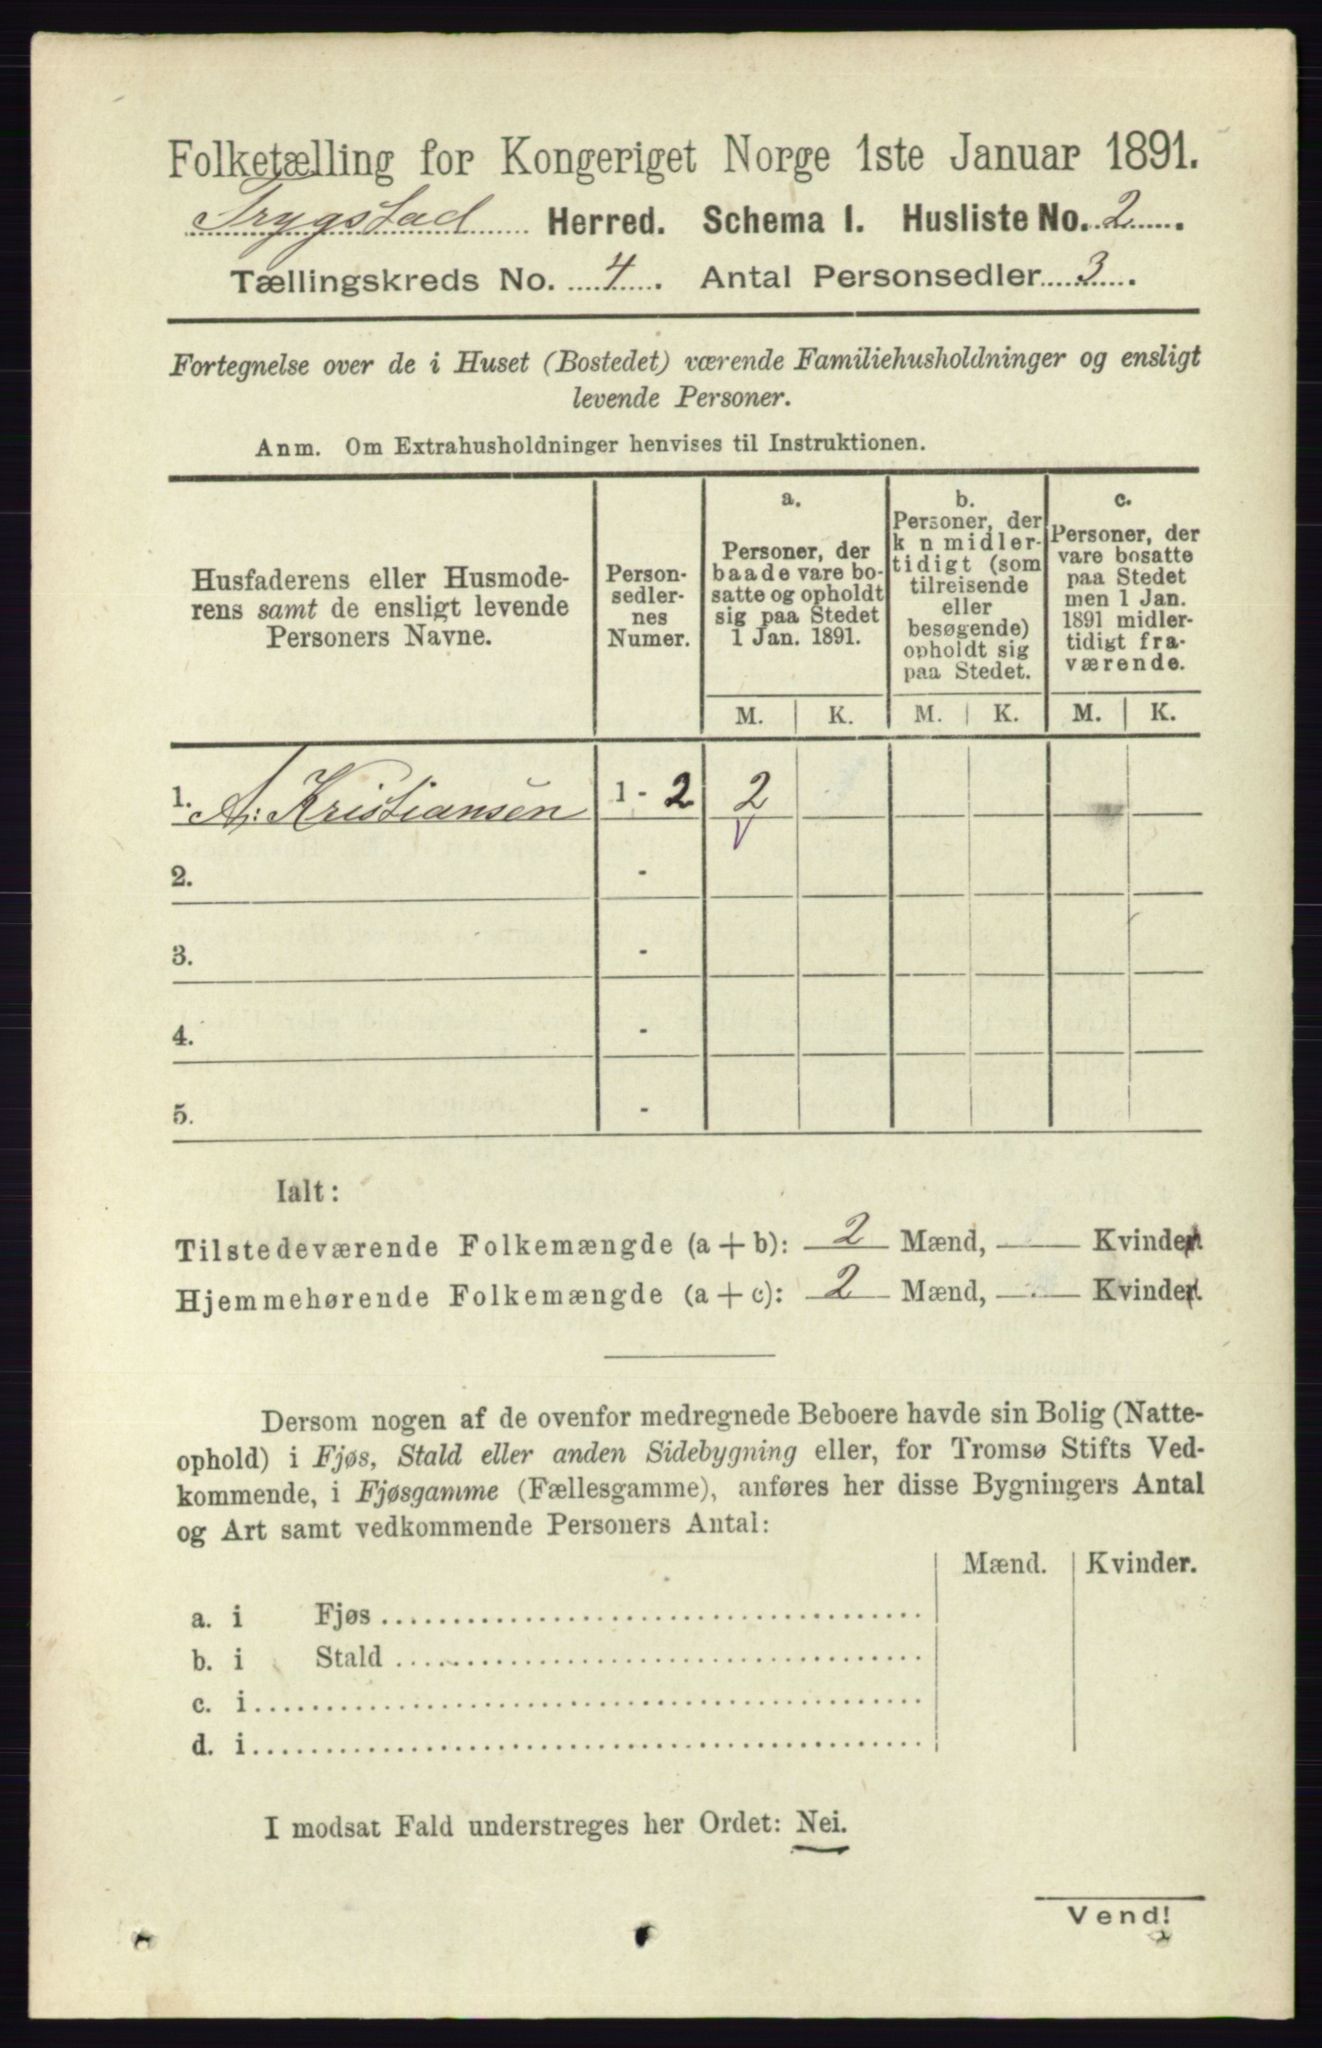 Folketælling for Kongeriget Norge 1ste Januar 1891.
Trygstad Herred. Schema I. Husliste No. 2.
Tællingskreds No. 4. Antal Personsedler 3.
Fortegnelse over de i Huset (Bostedet) værende Familiehusholdninger og ensligt
levende Personer.
Anm. Om Extrahusholdninger henvises til Instruktionen.
Husfaderens eller Husmode-
rens samt de ensligt levende
Personers Navne.
Person-
sedler-
nes
Numer.
a.
Personer, der
baade vare bo-
satte og opholdt
sig paa Stedet
1 Jan. 1891.
b.
Personer, der
k n midler-
tidigt (som
tilreisende
eller
besøgende)
opholdt sig
paa Stedet.
c.
Personer, der
vare bosatte
paa Stedet
men 1 Jan.
1891 midler-
tidigt fra-
værende.
M. K. M. K. M. K.
1. A: Kristiansen 1 - 2 2
2. -
3. -
4. -
5. -
Ialt:
Tilstedeværende Folkemængde (a + b): 2 Mænd, Kvinder.
Hjemmehørende Folkemængde (a + c): 2 Mænd, Kvinder.
Dersom nogen af de ovenfor medregnede Beboere havde sin Bolig (Natte-
ophold) i Fjøs, Stald eller anden Sidebygning eller, for Tromsø Stifts Ved-
kommende, i Fjøsgamme (Fællesgamme), anføres her disse Bygningers Antal
og Art samt vedkommende Personers Antal:
Mænd. Kvinder.
a. i Fjøs
b. i Stald
c. i
d. i
I modsat Fald understreges her Ordet: Nei.
Vend!